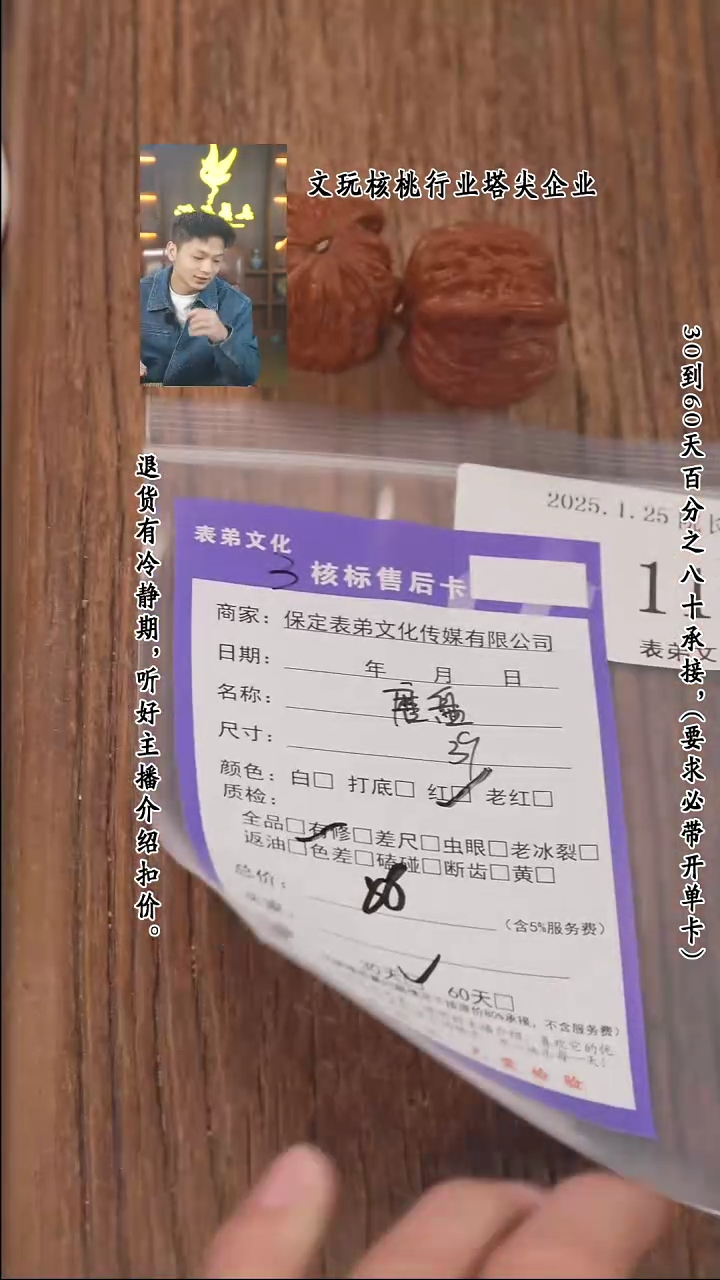 文玩核桃行业塔尖企业
30到60天百分之八十承接，(要求必带开单卡)
退货有冷静期，听好主播介绍扣价。
2025.1.25
11
表弟文
表弟文化
3 核标售后卡
商家：保定表弟文化传媒有限公司
日期： 年 月 日
名称：
尺寸：39
颜色：白□ 打底□ 红□ 老红□
质检：
全品□有修□差尺□虫眼□老冰裂□
返油□色差□磕碰□断齿□黄□
总价：
(含5%服务费)
30天
60天□
承接，不含服务费)